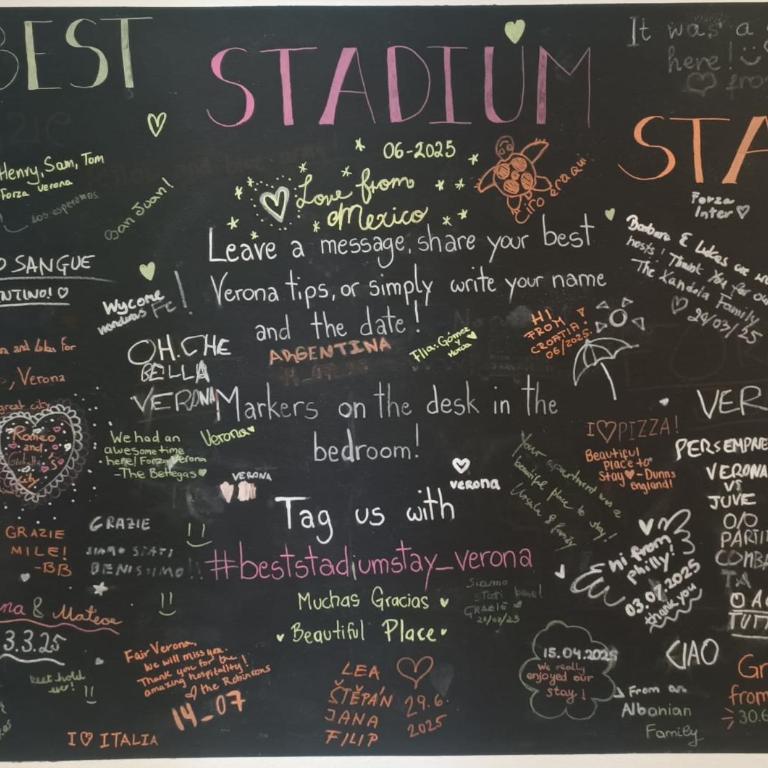 BEST
STADIUM
It was a
here!
STA
06-2025
Love from
Mexico
Ciro era qui
Henry, Sam, Tom
Forza Verona
San Juan!
Forza
Inter
Leave a message, share your best
Verona tips, or simply write your name
and the date!
SANGUE
Wycombe
Wanderers FC!
Barbara & Lukas
hosts! Thank You for
The Xandela Family
29/03/'25
HI
FROM
CROATIA
06/2025.
ARGENTINA
OH, CHE
BELLA
VERONA
Verona
great city
Romeo
and
city
Markers on the desk in the
bedroom!
We had an
awesome time
here! Forza Verona
-The Bettegas
Verona
VERONA
verona
I ♡ PIZZA!
Beautiful
Place to
Stay ♡ - Dunns
England!
Your apartment is a
beautiful place to stay!
VER
PER SEMPRE
VERONA
VS
JUVE
0/0
Tag us with
#beststadiumstay_verona
GRAZIE
MILE!
-BB
GRAZIE
SIAMO STATI
BENISSIMO
Hi from
philly!
03.07.2025
thank you
Muchas Gracias
Beautiful Place
Siamo
stati bene!
Grazie
& Matteo
3.3.25
best host
ever!
Fair Verona,
We will miss you.
Thank you for the
amazing hospitality!
♡ the Robinsons
14_07
LEA
ŠTĚPÁN
JANA
FILIP
29.6.
2025
15.04.2025
We really
enjoyed our
stay!
CIAO
From an
Albanian
Family
from
30.6
I ♡ ITALIA